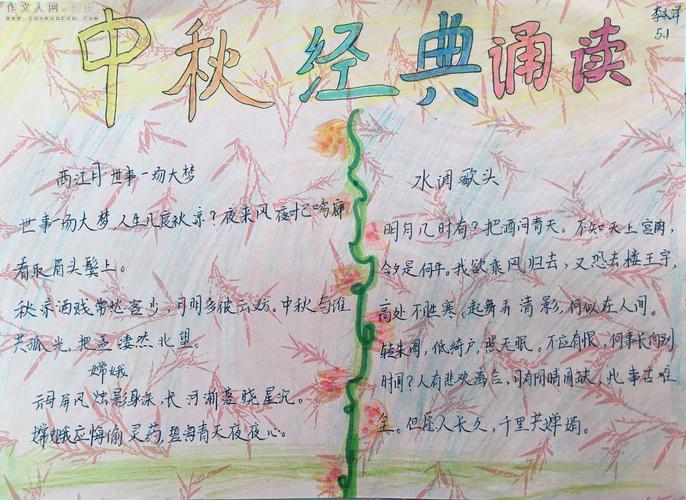 作文人网
www.zuowenren.com
中秋经典诵读
李
5.1
西江月 世事一场大梦
世事一场大梦,人生几度秋凉?夜来风夜忆鸣廊
看取眉头鬓上。
秋来酒贱常愁客少,月明多被云妨。中秋与谁
共孤光,把盏凄然北望。
嫦娥
云母屏风烛影深,长河渐落晓星沉。
嫦娥应悔偷灵药,碧海青天夜夜心。
水调歌头
明月几时有?把酒问青天。不知天上宫阙,
今夕是何年。我欲乘风归去,又恐去楼王宇,
高处不胜寒。起舞弄清影,何似在人间。
转朱阁,低绮户,照无眠。不应有恨,何事长向别
时间?人有悲欢离合,月有阴晴圆缺,此事古难
全。但愿人长久,千里共婵娟。